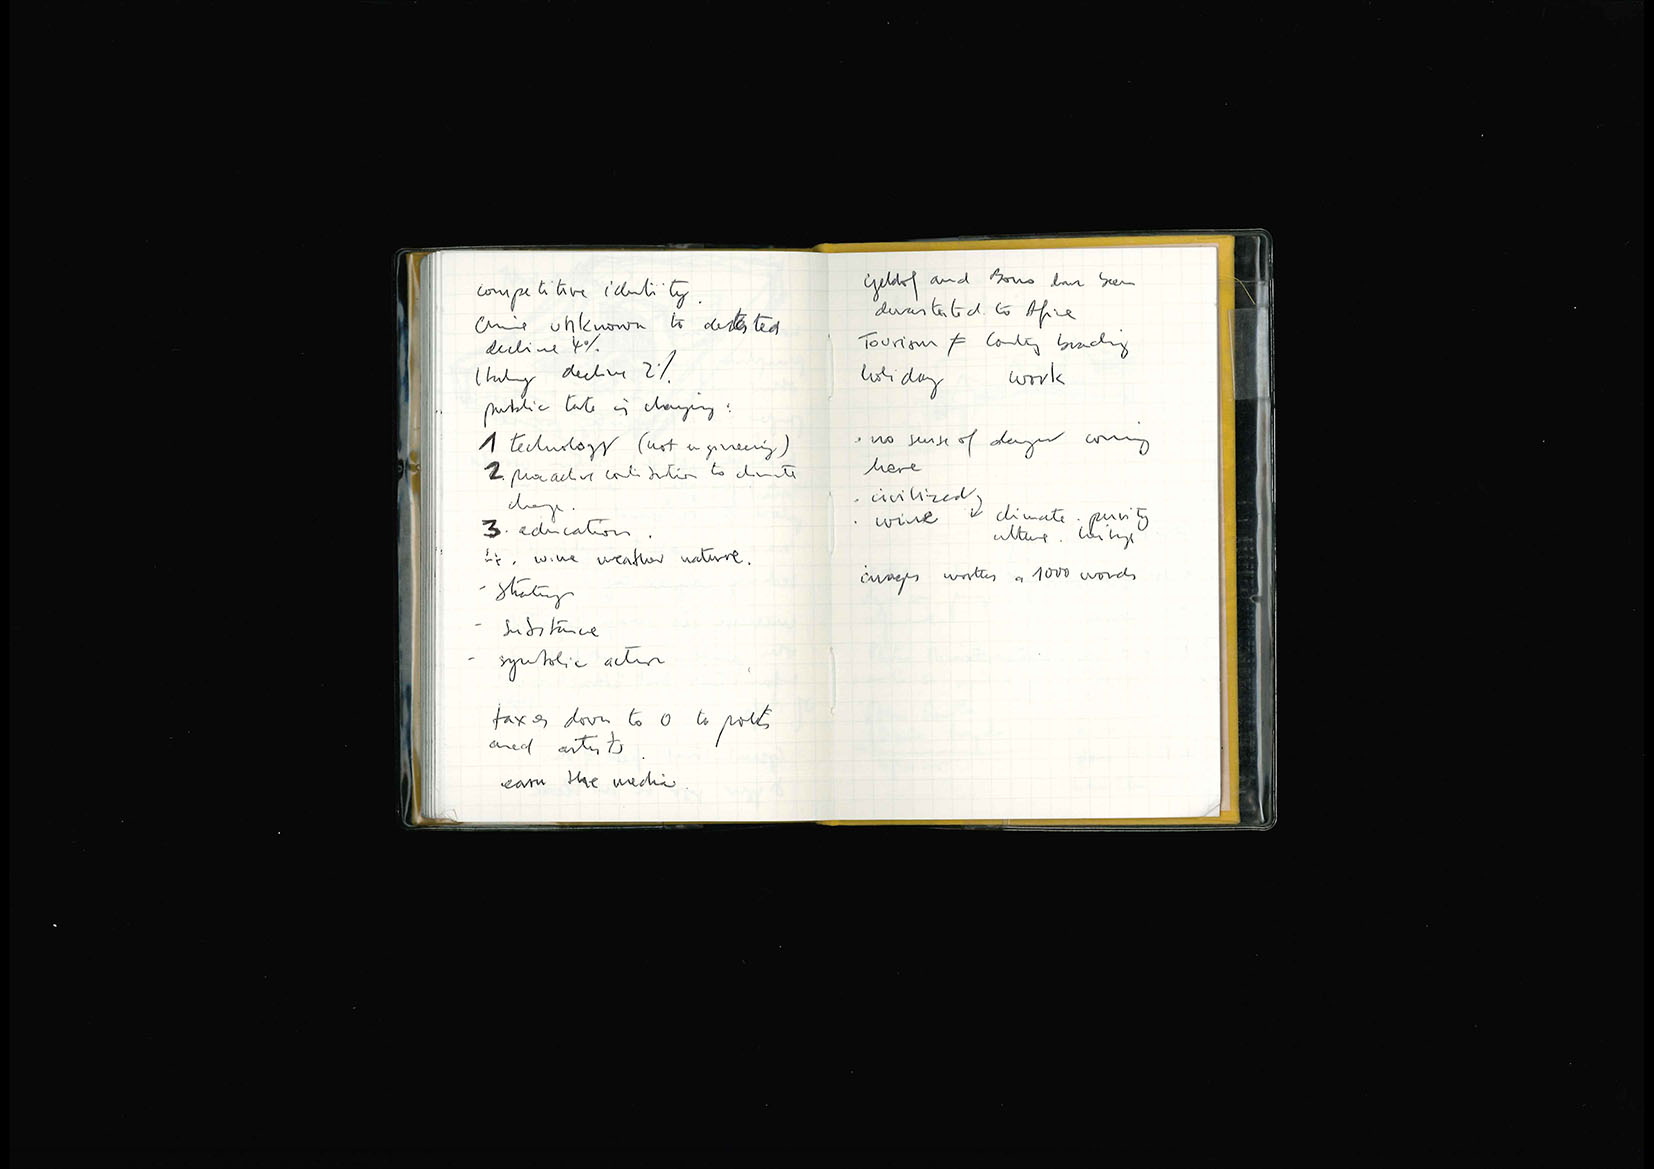 competitive identity.
unknown to detested
decline 4%
Italy decline 2%
public taste is changing:
1 technology (not engineering)
2. proactive contribution to climate
change.
3. education.
4. wine weather nature.
- strategy
- substance
- symbolic action
taxes down to 0 to poets
and artists.
earn the media.
Geldof and Bono have been
to Africa
Tourism ≠ Country branding
holiday work
. no sense of danger coming
here
. civilized
. wine climate. purity
culture.
images worths a 1000 words